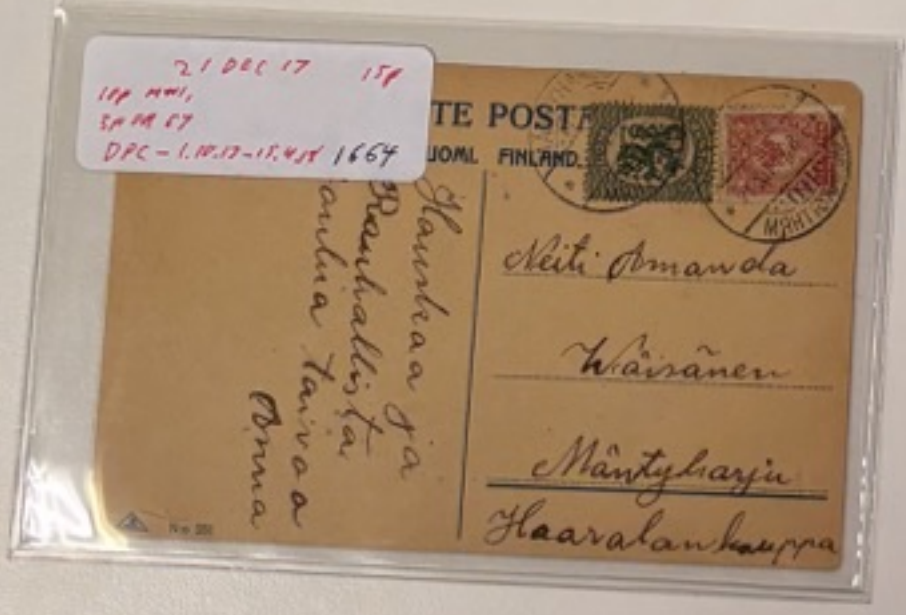 21 DEC 17 15p
10p
5p
DPC - 1.10.17 - 15.4.18 1664
TE POSTA
UOMI. FINLAND.
Hauskaa ja
Rauhallista
Joulua taivoa
Anna
Neiti Amanda
Wäisänen
Mäntyharju
Haaralan kauppa
No